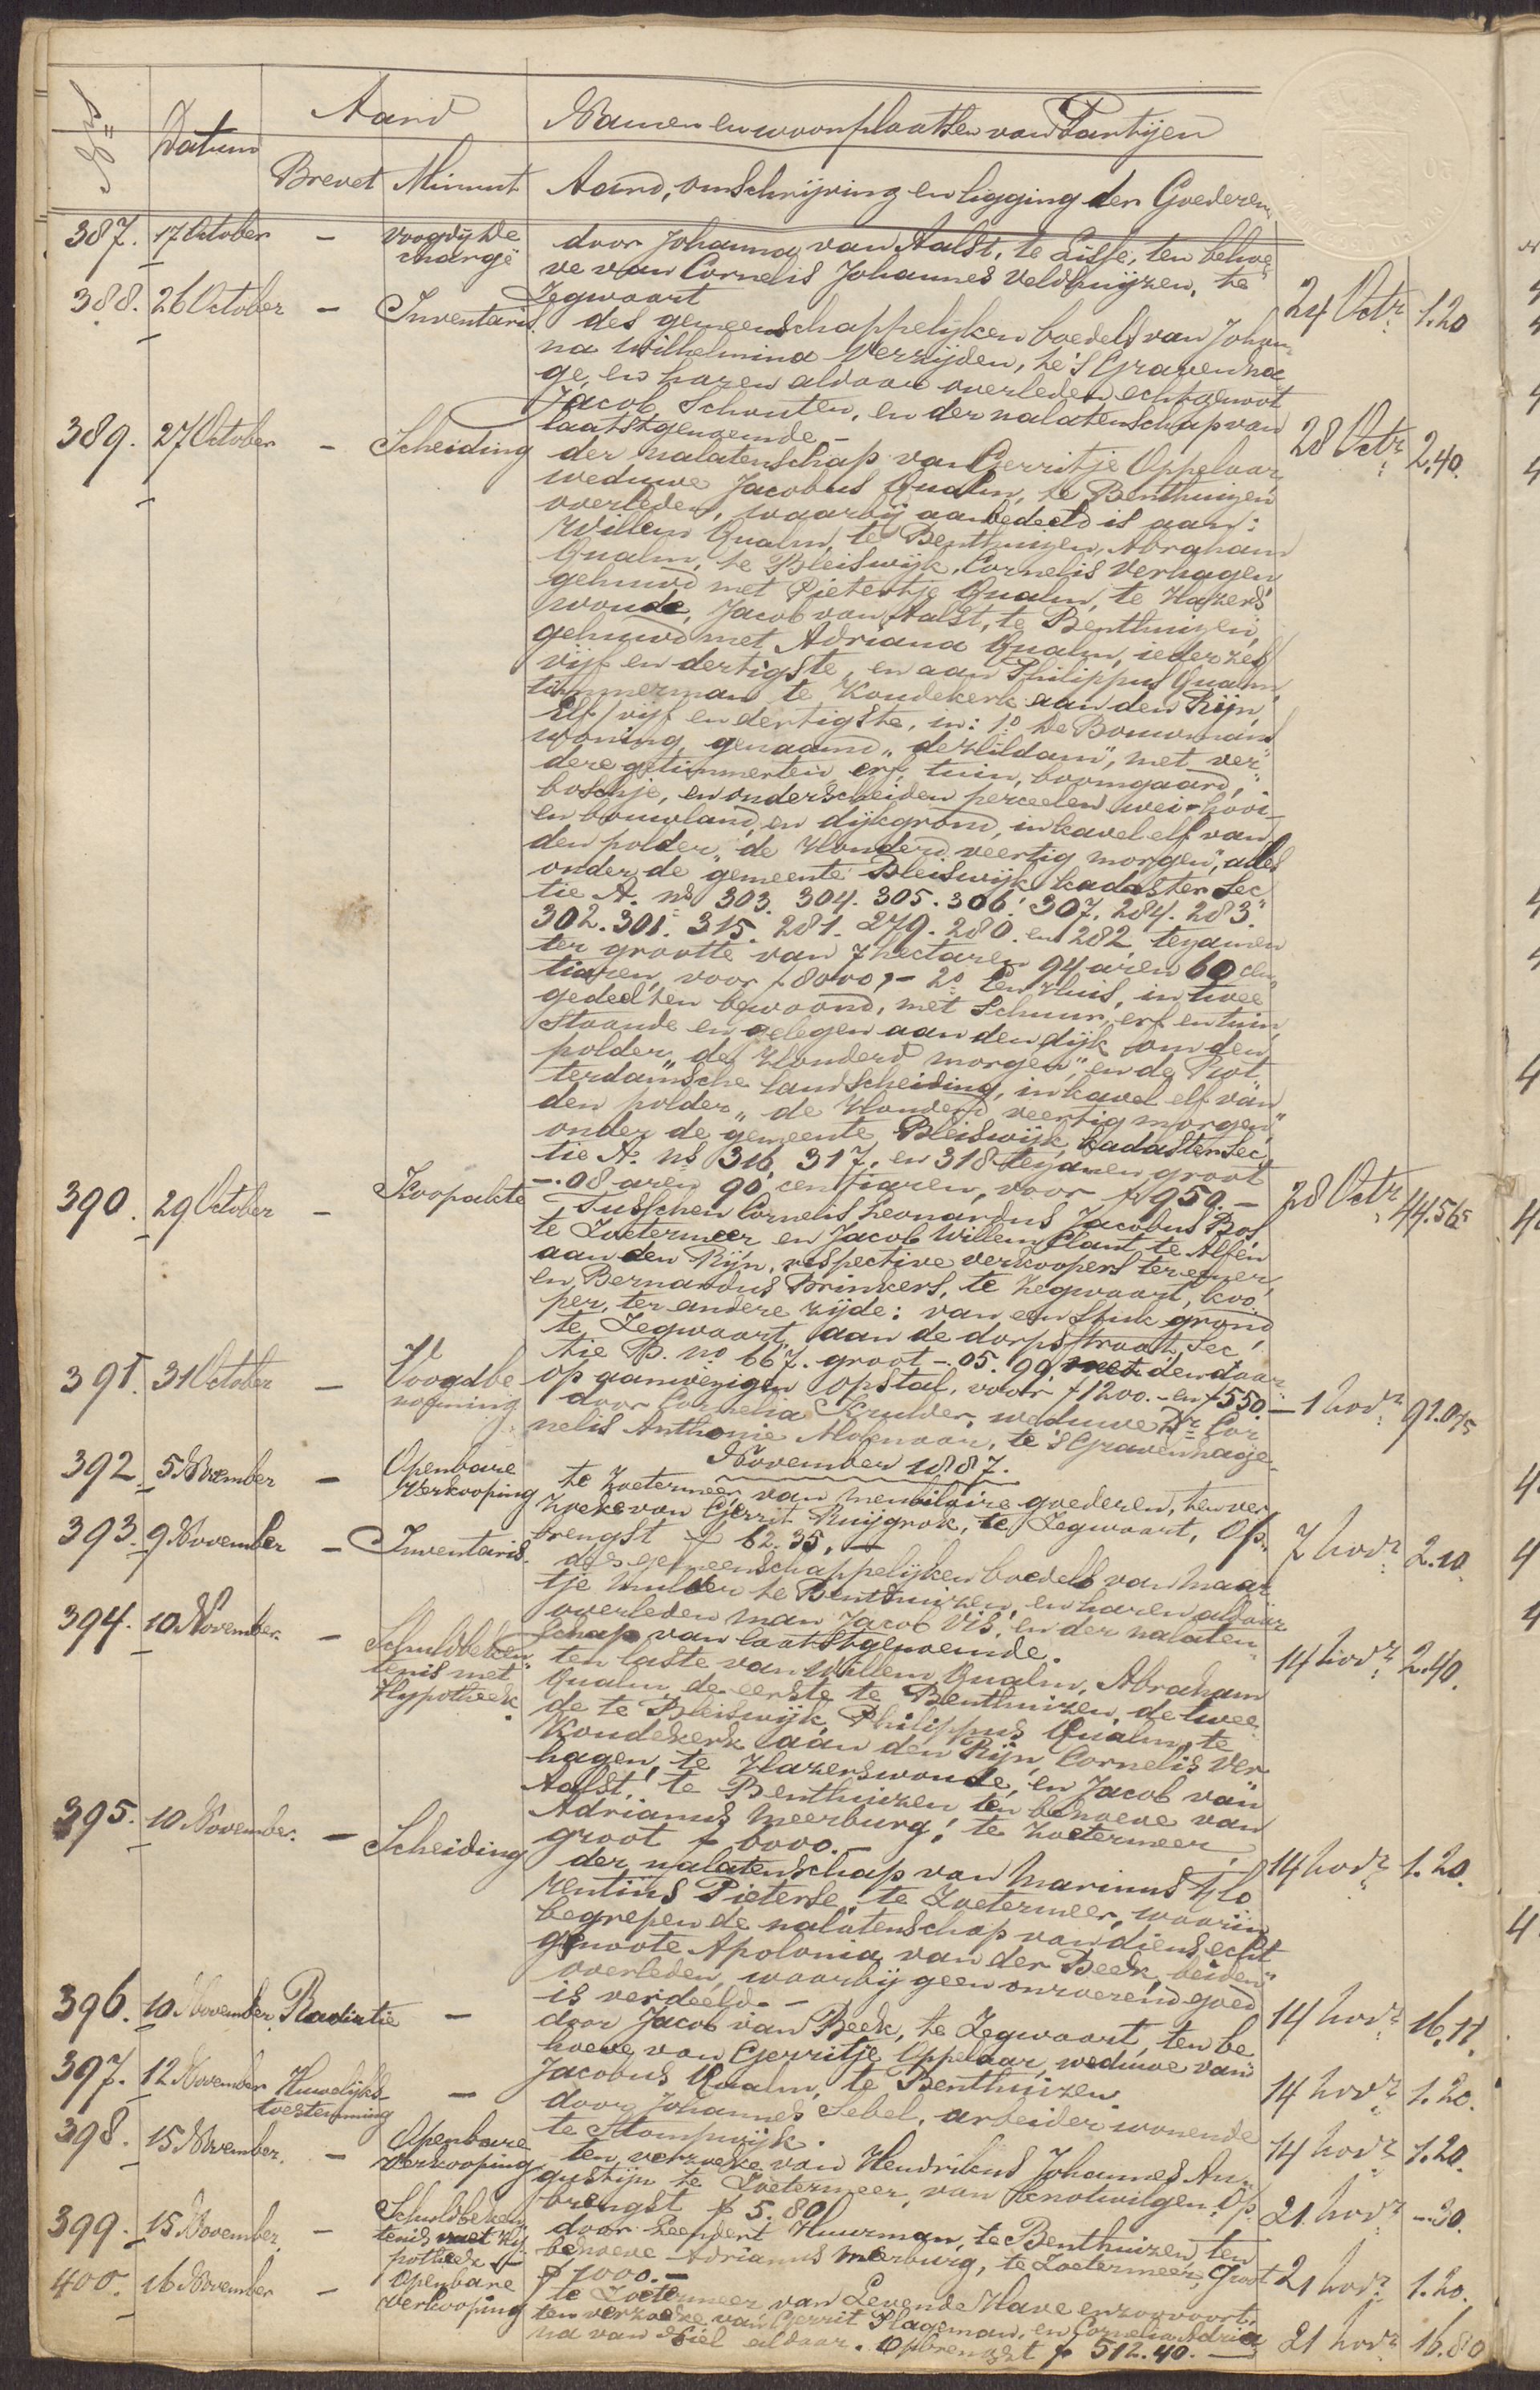 Nos Datum Aard Namen en woonplaatsen van Partijen
Brevet Minuut Aard, omschrijving en ligging der Goederen
387. 17 October - Voogdij De
charge door Johanna van Aalst, te Lisse, ten behoe
ve van Cornelis Johannes Veldhuijzen, te
Zegwaart 24 Octr 1.20
388. 26 October - Inventaris. des gemeenschappelijken boedels van Johan
na Wilhelmina Verzijden, te 's Gravenha
ge, en haren aldaar overleden echtgenoot
Jacob Schouten, en der nalatenschap van
laatstgenoemde - 28 Octr 2.40.
389. 27 October - Scheiding der nalatenschap van Gerritje Oppelaar
weduwe Jacobus Qualm, te Benthuizen
overleden, waarbij aanbedeeld is aan:
Willem Qualm, te Benthuizen, Abraham
Qualm, te Bleiswijk, Cornelis Verhagen
gehuwd met Pietertje Qualm, te Hazers
woude, Jacob van Aalst, te Benthuizen,
gehuwd met Adriana Qualm, ieder zes
vijf en dertigste, en aan Philippus Qualm,
timmerman te Koudekerk aan den Rijn,
Elf/vijf en dertigste, in: 1o De Bouwmans
woning, genaamd "de Hildam", met ver
dere getimmerten erf, tuin, boomgaard,
boschje, en onderscheiden perceelen wei- hooi-
en bouwland, en dijkgrond, in kavel elf van
den polder "de Honderd veertig morgen", alles
onder de gemeente Bleiswijk kadaster Sec
tie A. ns 303. 304. 305. 306. 307. 284. 283.
302. 301. 315. 281. 279. 280. en 282 tezamen
ter grootte van 7 hectaren 94 aren 60 cen
tiaren, voor f 8000,- 2o Een Huis, in twee
gedeelten bewoond, met Schuur, erf en tuin,
staande en gelegen aan den dijk om den
polder "de Honderd morgen", en de Rot
terdamsche landscheiding, in kavel elf van
den polder "de Honderd veertig morgen"
onder de gemeente Bleiswijk, kadaster Sec
tie A. ns 316, 317, en 318 tezamen groot
-.08 aren 90 centiaren, voor f 950 - 28 Octr 44.565
390. 29 October - Koopakte Tusschen Cornelis Leonardus Jacobus Bos,
te Zoetermeer en Jacob Willem Plant te Alfen
aan den Rijn, respective verkoopers ter eener,
en Bernardus Brinkers, te Zegwaart, koo
per, ter andere zijde: van een stuk grond
te Zegwaart, aan de dorpsstraat, Sec
tie B. no 667. groot -.05.90, met den daar
op aanwezigen opstal, voor f 1200.- en f 550.- 1 Novr 91.075
391. 31 October - Voogdbe
noeming door Cornelia Krulder, weduwe Dr Cor
nelis Anthonie Molenaar, te 's Gravenhage
November 1887.
392. 5 November - Openbare
Verkooping te Zoetermeer, van meubilaire goederen, ten ver
zoeke van Gerrit Ruijgrok, te Zegwaart, Op
brengst f 62.35,- 7 Novr 2.10.
393. 9 November - Inventaris. des gemeenschappelijken boedels van Maar
tje Mulder te Benthuizen, en haren aldaar
overleden man Jacob Vis, en der nalaten
schap van laatstgenoemde. 14 Novr 2.40.
394. 10 November. - Schuldbeken
tenis met
Hypotheek. ten laste van Willem Qualm, Abraham
Qualm, de eerste te Benthuizen, de twee
de te Bleiswijk, Philippus Qualm, te
Koudekerk aan den Rijn, Cornelis Ver
hagen, te Hazerswoude, en Jacob van
Aalst, te Benthuizen ten behoeve van
Adrianus Meerburg, te Zoetermeer,
groot f 6000.- 14 Novr 1.20.
395. 10 November. - Scheiding der nalatenschap van Marinus Flo
rentius Pieterse, te Zoetermeer, waarin
begrepen de nalatenschap van diens echt
genoote Apolonia van der Beek, beiden
overleden, waarbij geen onroerend goed
is verdeeld.- 14 Novr 16.11.
396. 10 November. Radiatie - door Jacob van Beek, te Zegwaart, ten be
hoeve van Gerritje Oppelaar, weduwe van
Jacobus Qualm, te Benthuizen. 14 Novr 1.20.
397. 12 November Huwelijks
toestemming - door Johannes Sebel, arbeider wonende
te Stompwijk. 14 Novr 1.20.
398. 15 November. - Openbare
Verkooping ten verzoeke van Hendrikus Johannes Au
gustijn te Zoetermeer, van knotwilgen. Op
brengst f 5.80. 21 Novr -.30.
399. 15 November. - Schuldbeken
tenis met Hy
potheek - door Leendert Huurman, te Benthuizen, ten
behoeve Adrianus Meerburg, te Zoetermeer, groot
f 7000.- 21 Novr 1.20.
400. 16 November - Openbare
Verkooping te Zoetermeer van Levende Have enzoovoort,
ten verzoeke van Gerrit Plageman, en Cornelia Adria
na van Niel aldaar. Opbrengst f 512.40.- 21 Novr 16.80